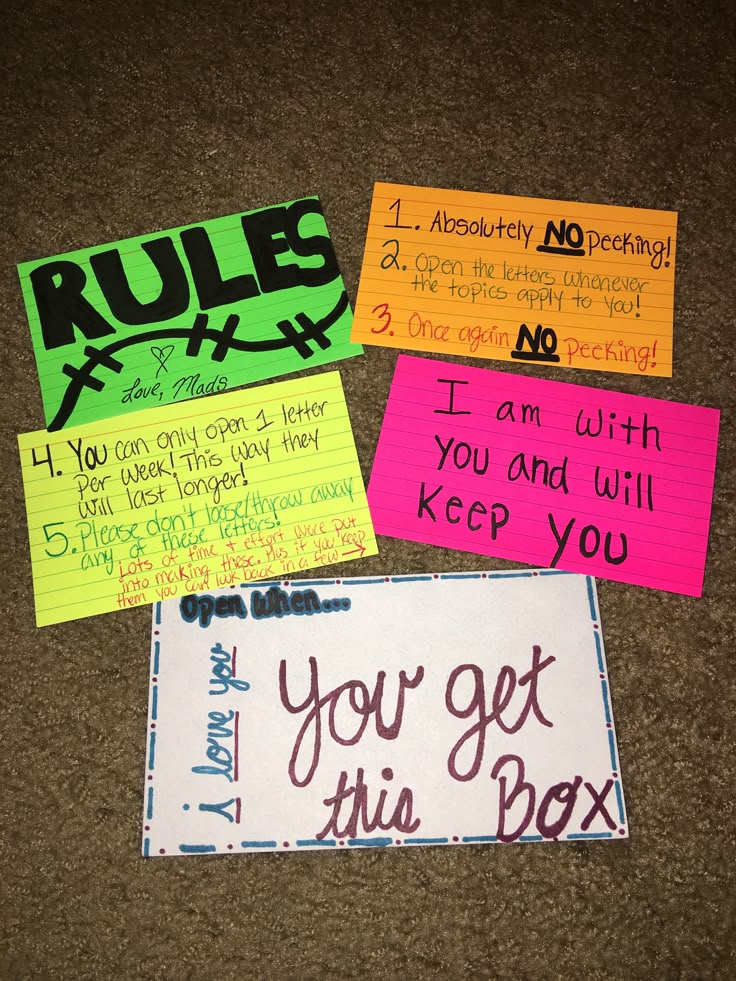 RULES
Love, Mads
1. Absolutely NO peeking!
2. Open the letters whenever
the topics apply to you!
3. Once again NO peeking!
4. You can only open 1 letter
per week! This way they
will last longer!
5. Please don't loose/throw away
any of these letters!
Lots of time + effort were put
into making these. Plus if you keep
them you can look back in a few →
I am with
you and will
Keep you
Open When...
i love you
you get
this Box